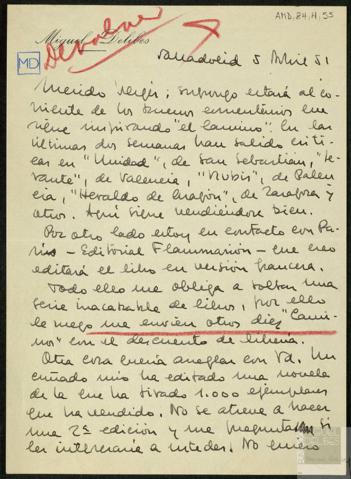 AMD, 84, 4, 55
Miguel Delibes
Devolver
MD
Valladolid 5 Abril 51
Querido Vergés: supongo estará al co-
rriente de los buenos comentarios que
sigue inspirando "El camino". En las
últimas dos semanas han salido críti-
cas en "Unidad", de San Sebastián, "Le-
vante", de Valencia, de Palen-
cia, "Heraldo de Aragón", de Zaragoza y
otros. Aquí sigue vendiéndose bien.
Por otro lado estoy en contacto con Pa-
rís - Editorial Flammarion - que creo
editará el libro en versión francesa.
Todo ello me obliga a soltar una
serie inacabable de libros, por ello
le ruego me envíen otros diez "Cami-
nos" con el descuento de librería.
Otra cosa quería arreglar con Vd. Un
cuñado mío ha editado una novela
de la que ha tirado 1.000 ejemplares
que ha vendido. No se atreve a hacer
una 2ª edición y me pregunta si
les interesaría a ustedes. No quiero